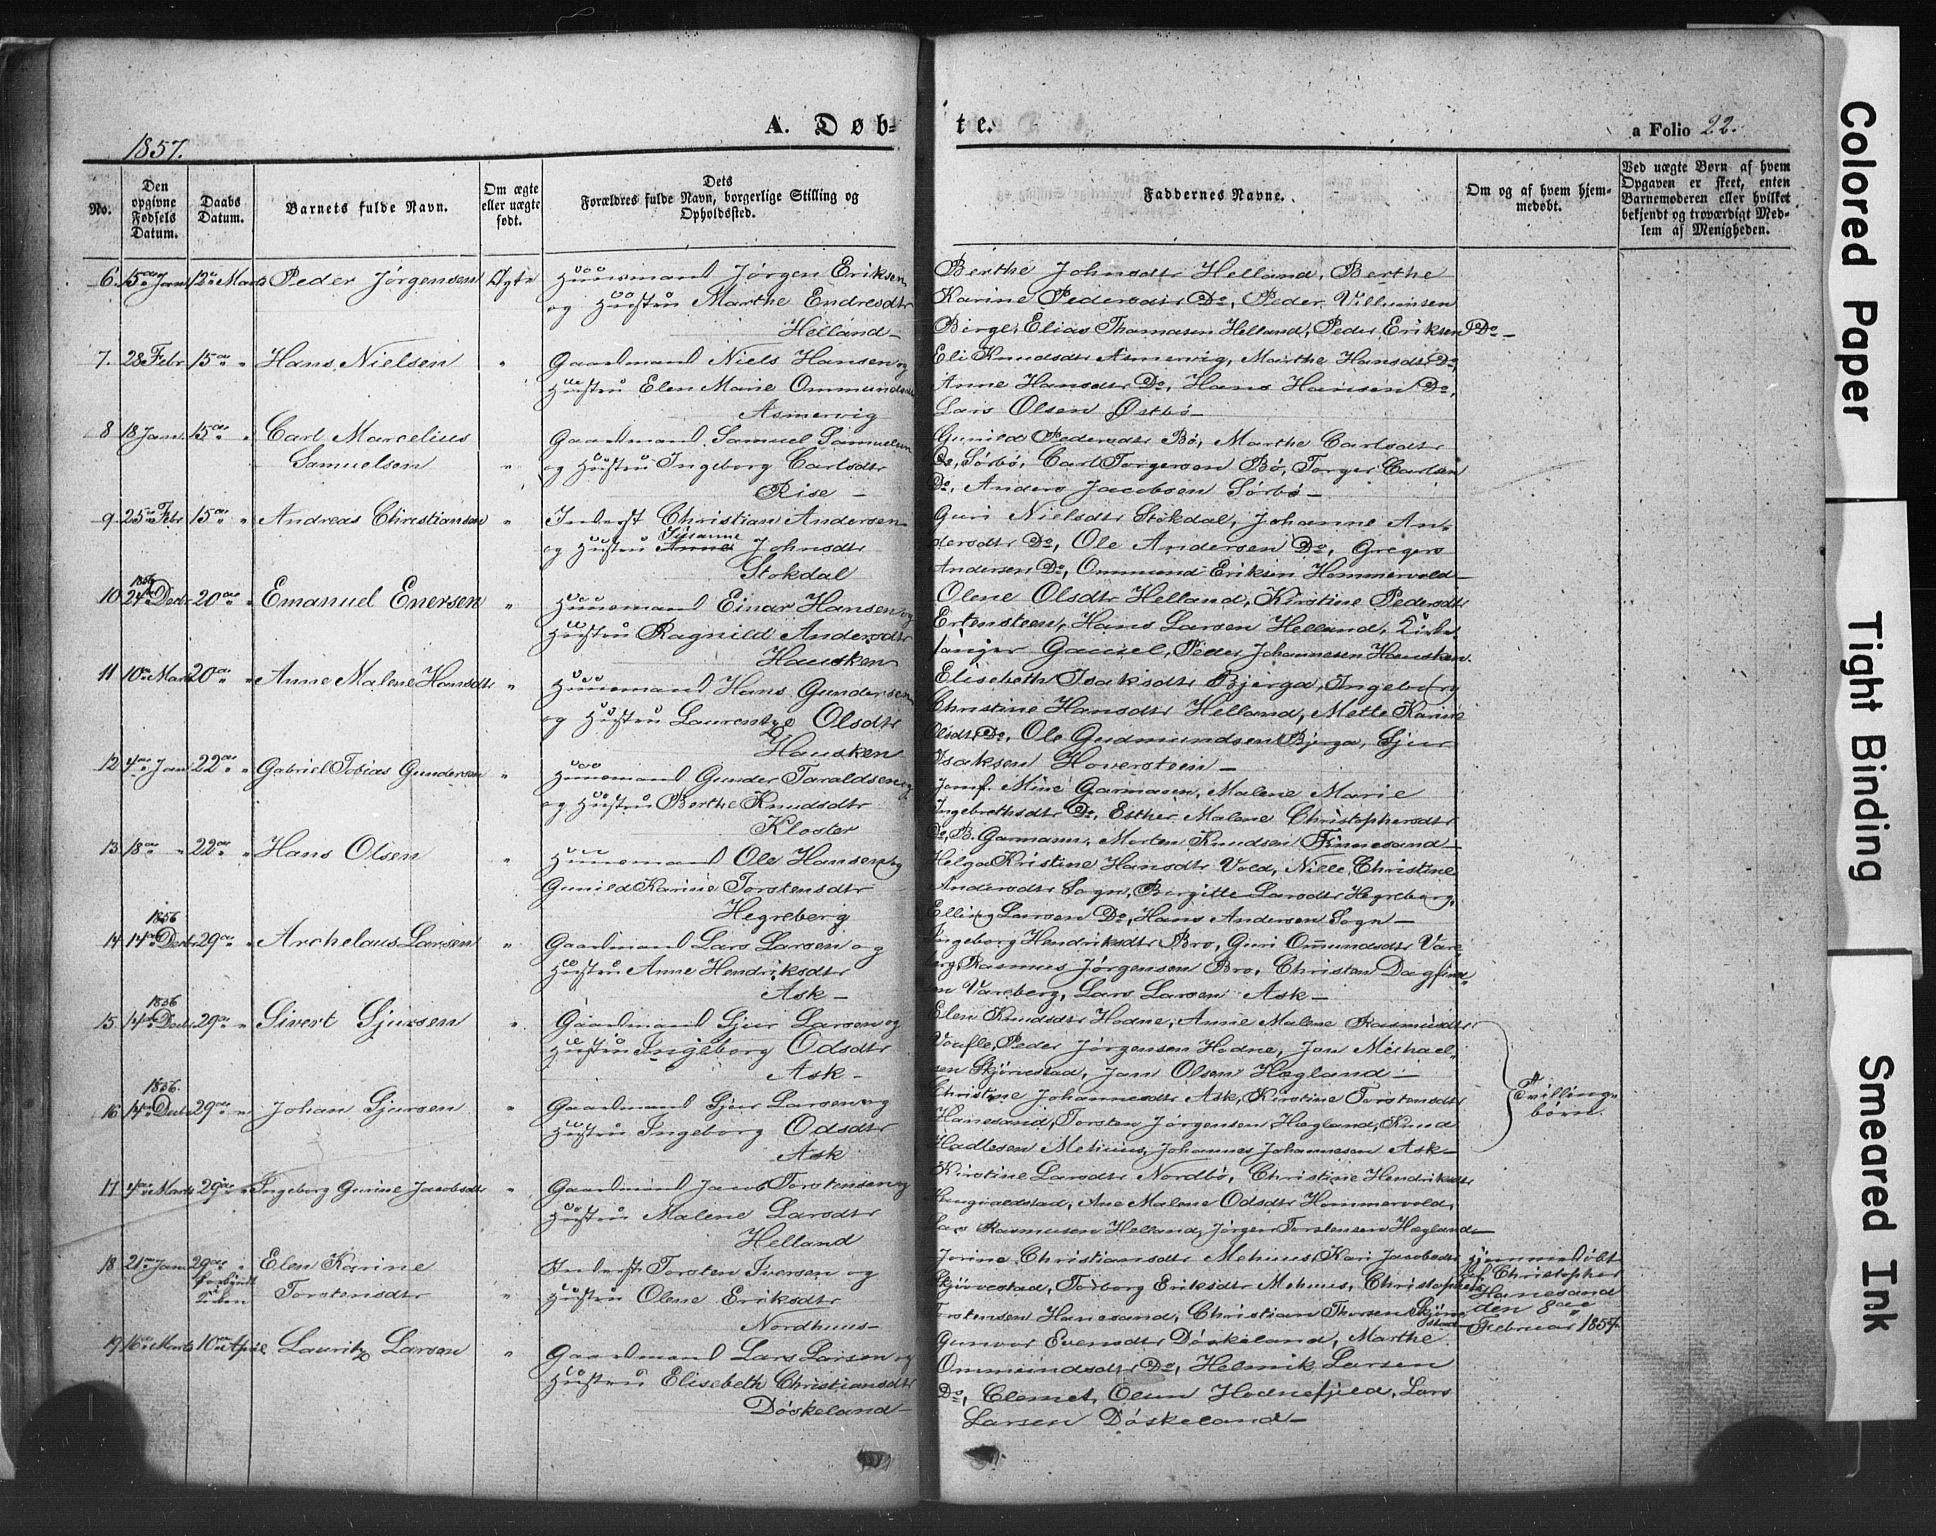 1857.
A. Døb-
te.
a Folio 22.
No.
Den
opgivne
Fødsels
Datum.
Daabs
Datum.
Barnets fulde Navn.
Om ægte
eller uægte
født.
Dets
Forældres fulde Navn, borgerlige Stilling og
Opholdssted.
Faddernes Navne.
Om og af hvem hjem-
medøbt.
Ved uægte Børn af hvem
Opgaven er skeet, enten
Barnemoderen eller hvilket
bekjendt og troværdigt Med-
lem af Menigheden.
6. 15de Jan 12te Marts Peder Jørgensen Ægte Huusmand Jørgen Eriksen
og Hustru Marthe Endresdtr
Helland
Berthe Johnsdtr Helland, Berthe
Karine Pedersdtr Do, Peder Villumsen
Birge, Elias Thomasen Helland, Peder Eriksen Do
7. 28 Febr 15de " Hans Nielsen " Gaardmand Niels Hansen og
Hustru Elen Marie Ommundsdtr
Asmervig
Eli Knudsdtr Asmervig, Marthe Hansdtr Do,
Anne Hansdtr Do, Hans Hansen Do,
Lars Olsen Østbø
8 18 Jan. 15de " Carl Marcelius
Samuelsen " Gaardmand Samuel Samuelsen
og Hustru Ingeborg Carlsdtr
Rise
Gunild Pedersdtr Bø, Marthe Carlsdtr
Do, Sørbø, Carl Torgersen Bø, Torger Carlsen
Do, Anders Jacobsen Sørbø
9 25de Febr 15de " Andreas Christiansen " Inderst Christian Andersen
Susanne
og Hustru Anne Johnsdtr
Stokdal
Guri Nielsdtr Stokdal, Johanne An-
dersdtr Do, Ole Andersen Do, Gregers
Andersen Do, Ommund Eriksen Hommervold
1856
10 24de Decbr 20de " Emanuel Enersen " Huusmand Einar Hansen og
Hustru Ragnild Andersdtr
Hausken
Olene Olsdtr Helland, Kirstine Pedersdtr
Ertensteen, Hans Larsen Helland, Kirke
sanger Gausel, Peder Johannesen Hausken.
11 10de Marts 20de " Anne Malene Hansdtr " Huusmand Hans Gundersen
og Hustru Laurentze Olsdtr
Hausken
Elisebeth Isaksdtr Bjerga, Ingeborg
Christine Hansdtr Helland, Mette Karine
Olsdtr Do, Ole Gudmundsen Bjerga, Sjur
Isaksen Hoversteein
12 4de Jan 22de " Gabriel Tobias Gundersen " Huusmand Gunder Taraldsen og
og Hustru Berthe Knudsdtr
Kloster
Jomf. Mine Garmann, Malene Marie
Ingebrethsdtr Do, Esther Malene Christophersdtr
Do, B. Garmann, Morten Knudsen Finnesand
13 18de " 22de " Hans Olsen " Huusmand Ole Hansen og
Gunild Karine Torstensdtr
Hegreberg
Helga Kristine Hansdtr Vold, Nille Christine
Andersdtr Sogn, Birgitte Larsdtr Hegreberg,
Elling Larsen Do, Hans Andersen Sogn
1856
14 14de Decbr 29de " Archelaus Larsen " Gaardmand Lars Larsen og
Hustru Anne Hendriksdtr
Ask
Ingeborg Hendriksdtr Bro, Guri Ommundsdtr Vare
berg, Rasmus Jørgensen Bro, Christen Dagfind-
en Vareberg, Lars Larsen Ask
1856
15 14de Decbr 29de " Sivert Sjursen " Gaardmand Sjur Larsen og
Hustru Ingeborg Odsdtr
Ask
Elen Knudsdtr Hodne, Anne Malene Rasmusdtr
Voufle, Peder Jørgensen Hodne, Jon Michael-
sen Skjørvestad, Jan Olsen Hægland
1856.
16 14de Decbr 29de " Johan Sjursen " Gaardmand Sjur Larsen og
Hustru Ingeborg Odsdtr
Ask
Christine Johannesdtr Ask, Kirstine Torstensdtr
Hanesand, Torsten Jørgensen Hægland, Knud
Hadlesen Mehuus, Johannes Johannesen Ask
Tvillinge-
børn.
17 4de Marts 29de " Ingeborg Gurine Jacobsdtr " Gaardmand Jacob Torstensen og
Hustru Malene Larsdtr
Helland
Kirstine Larsdtr Nordbø, Christine Hendriksdtr
Ane Malene Odsdtr Hommervold,
Lars Rasmusen Helland, Jørgen Torstensen Hægland
18 21de Jan 29de " Elen Karine
Torstensdtr " Inderst Torsten Iversen og
Hustru Olene Eriksdtr
Nordhuus
Jorine Christiansdtr Mehuus, Kari Jacobsdtr
Skjørvestad, Torborg Eriksdtr Mehuus, Christopher
Torstensen Hanesand, Christian Thorsen Skjørve
stad
Hjemmedøbt
af Christopher
Hanesand
den 8de
Februar 1857.
19 16de Marts 10de April Lauritz Larsen " Gaardmand Lars Larsen og
Hustru Elisebeth Christiansdtr
Døskeland
Gunvor Evensdtr Døskeland, Marthe
Ommundsdtr Do, Helmik Larsen
Do, Clemet Olsen Hodnefjeld, Lars
Larsen Døskeland
Colored Paper
Tight Binding
Smeared Ink